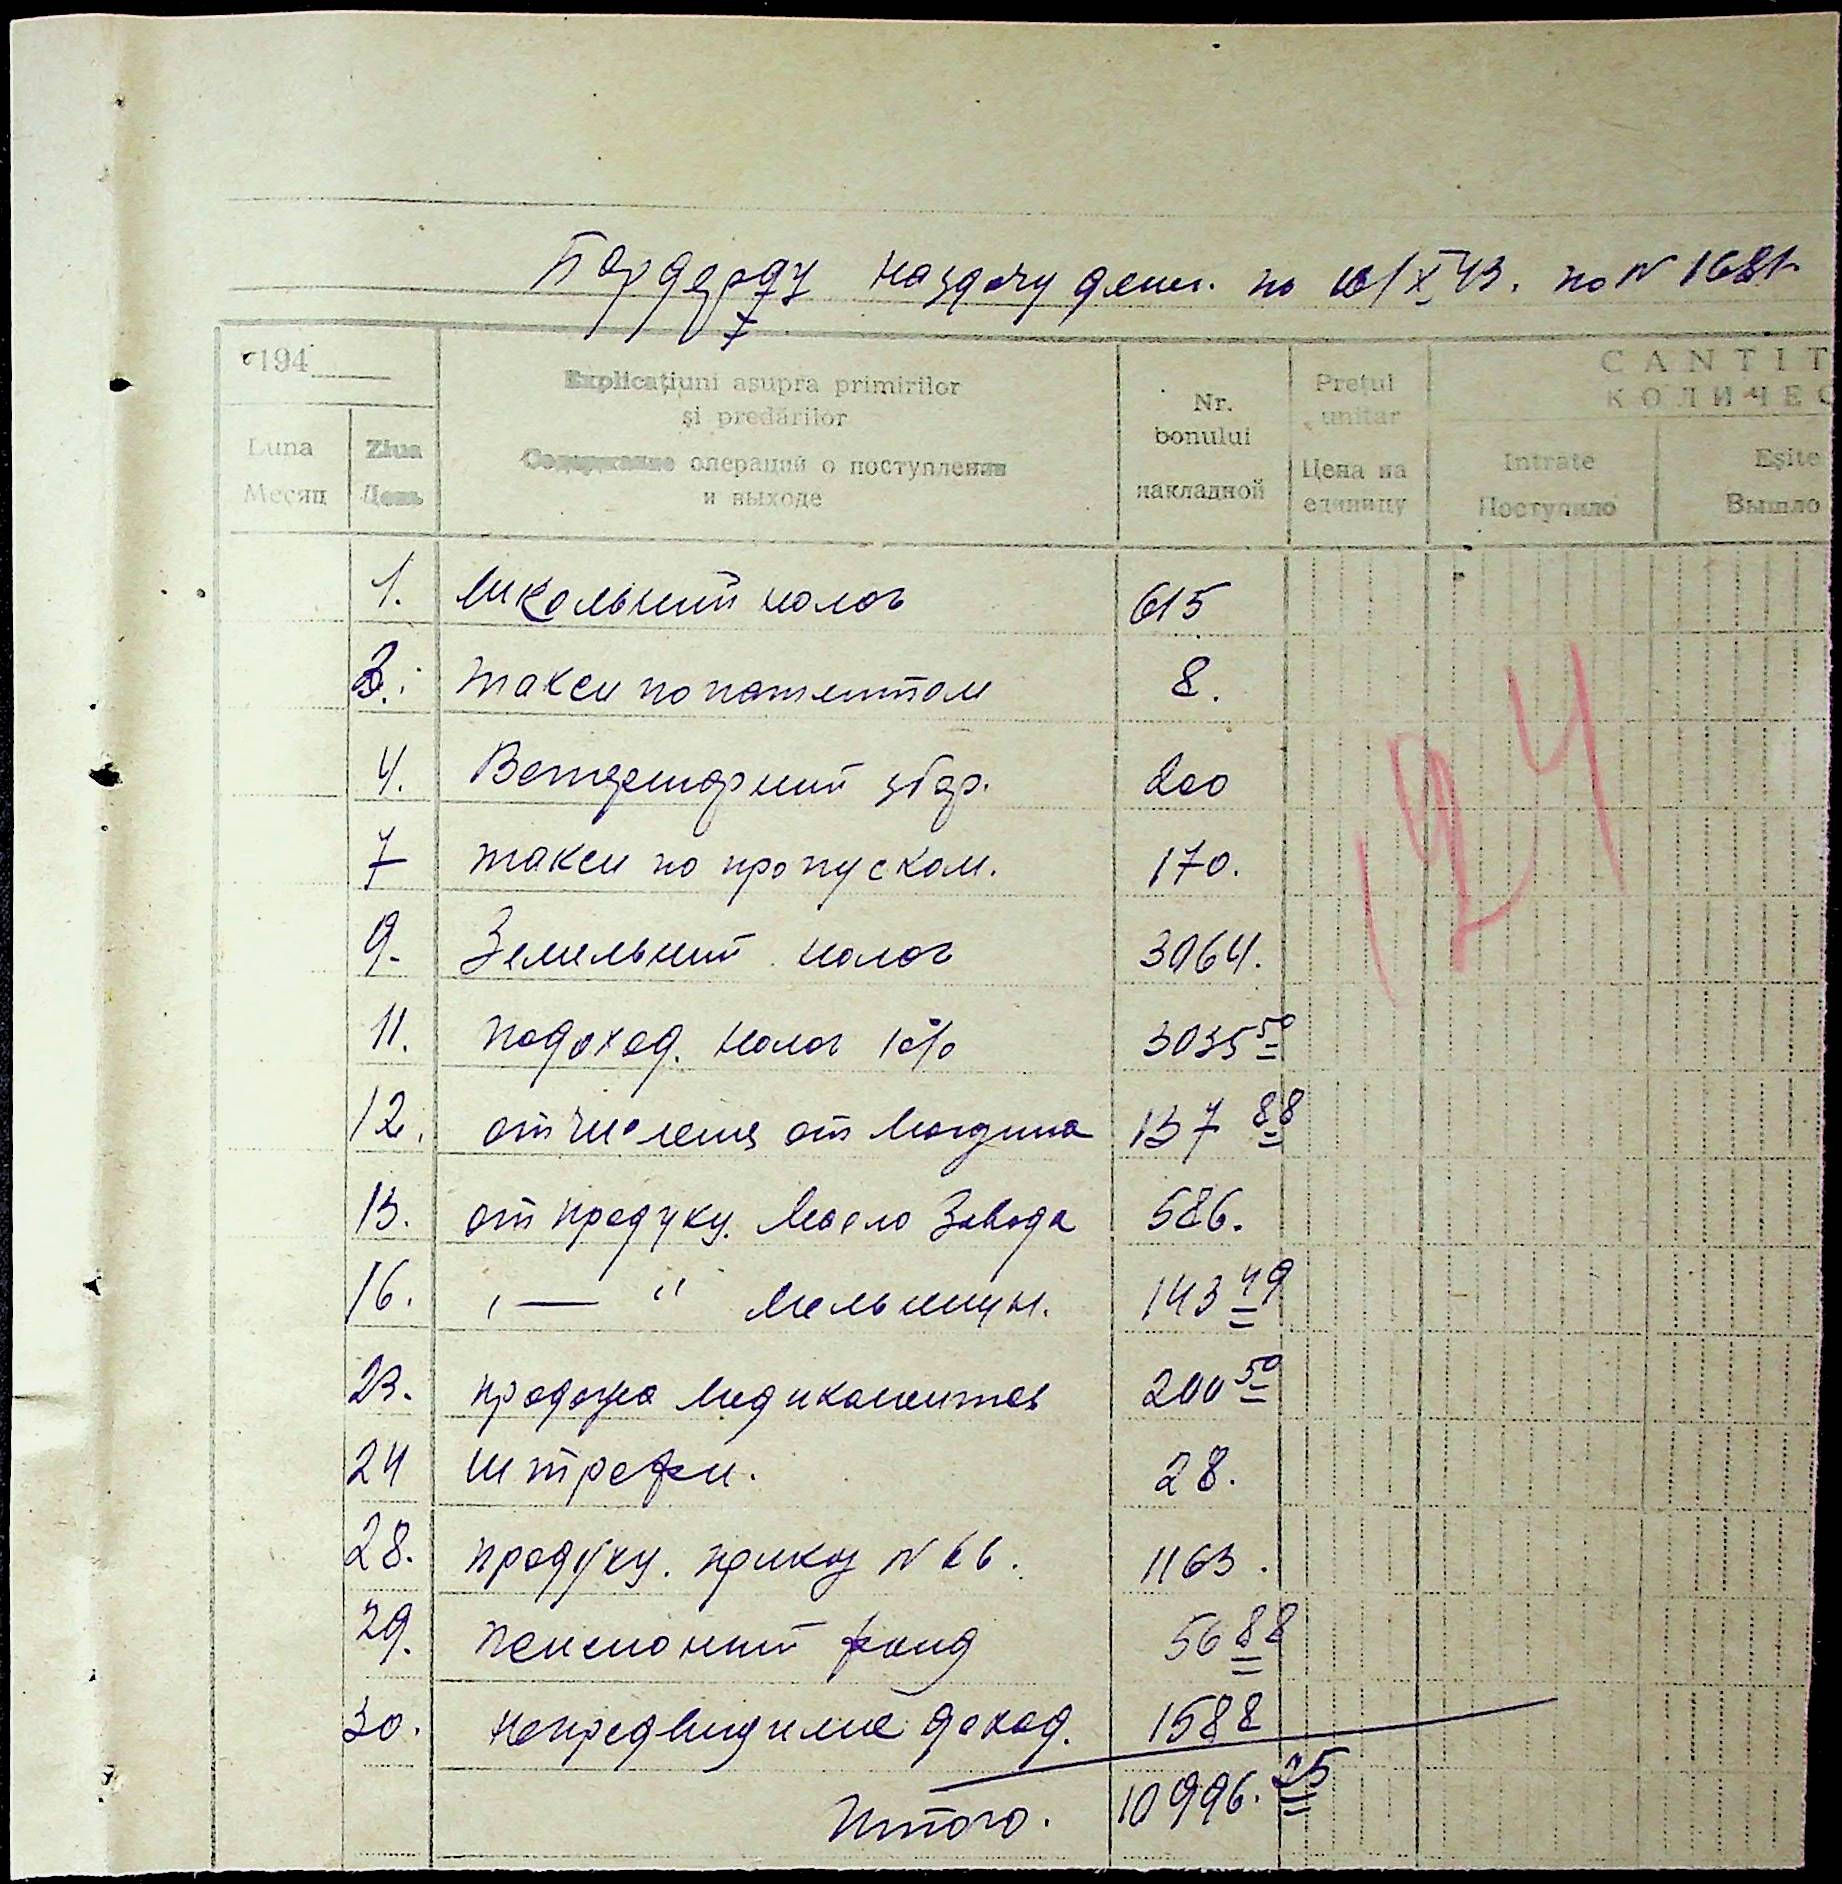 Бордеро на здачу денег. по 10/X 43. по N 1681
194
Explicațiuni asupra primirilor
și predărilor
Содержание операций о поступлении
и выходе
Luna
Месяц
Ziua
День
Nr.
bonului
накладной
Prețul
unitar
Цена на
единицу
CANTIT
КОЛИЧЕС
Intrate
Поступило
Eșite
Вышло
1. Школьний налог 615
3. такси по патентам 8.
4. Ветеринарний збор. 200
7 такси по пропускам. 170.
9. Земельний налог 3064.
11. подоход. налог 10% 3035 50
12. отчисления от Магазина 137 88
13. от продукц. Масло Завода 586.
16. " — " Мельницы. 143 49
23. продажа Медикаментов 200 50
24 штрафи. 28.
28. продукц. приказ N 66. 1163.
29. пенсионний фонд 56 88
30. непредвидимие доход. 1588
Итого. 10996. 25
124